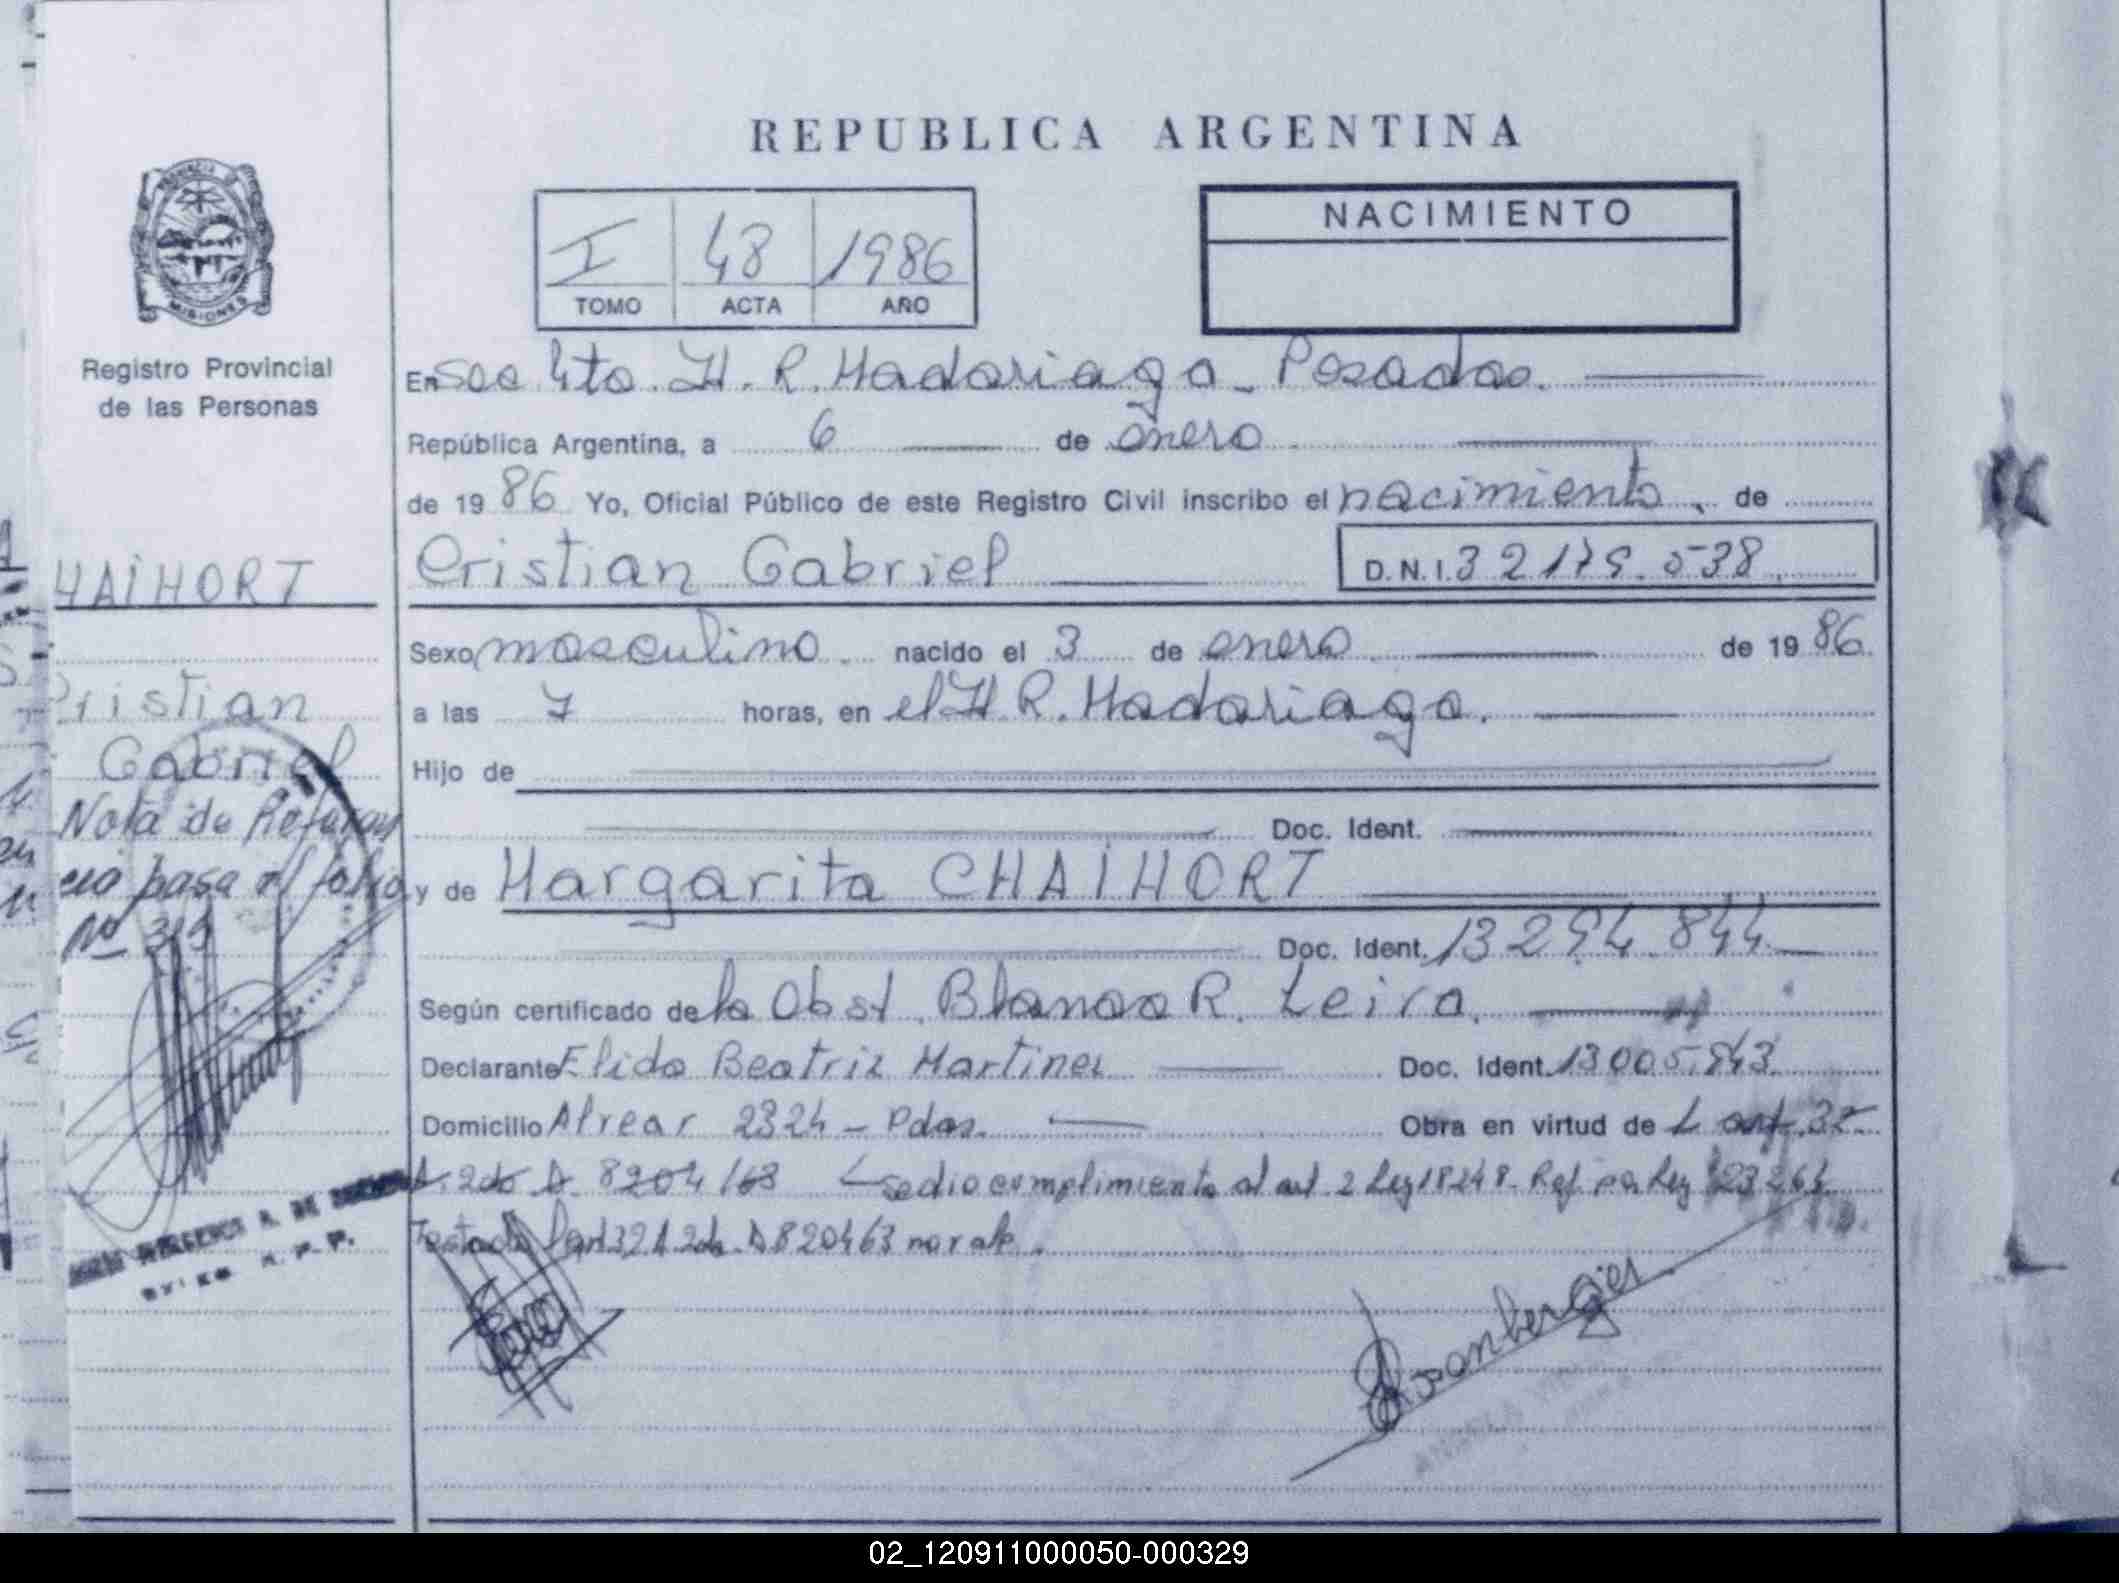 REPUBLICA ARGENTINA
I 48 1986
TOMO ACTA AÑO
NACIMIENTO
MISIONES
Registro Provincial
de las Personas
En Sec 4ta. H. R. Madariaga - Posadas.
República Argentina, a 6 de enero
de 19 86 Yo, Oficial Público de este Registro Civil inscribo el nacimiento, de
CHAIMORT
Cristian Gabriel D.N.I. 32.179.538
Sexo masculino nacido el 3 de enero de 19 86
Cristian
a las 7 horas, en el H. R. Madariaga.
Gabriel
Hijo de
Nota de Referen
Doc. Ident.
cia pasa al folio
Nº 319
y de Margarita CHAIMORT
Doc. Ident. 13.294.844
Según certificado de la Obst. Blanca R. Leiva.
Declarante Elida Beatriz Martinez Doc. Ident. 13.005.843
Domicilio Alvear 2324 - Pdas. Obra en virtud de L art. 32
A. 2do D. 8204/63 se dio cumplimiento al art. 2 Ley 18248. Ref. por Ley 23264
Testado L art 32 A. 2do D 8204 63 no vale.
02_120911000050-000329